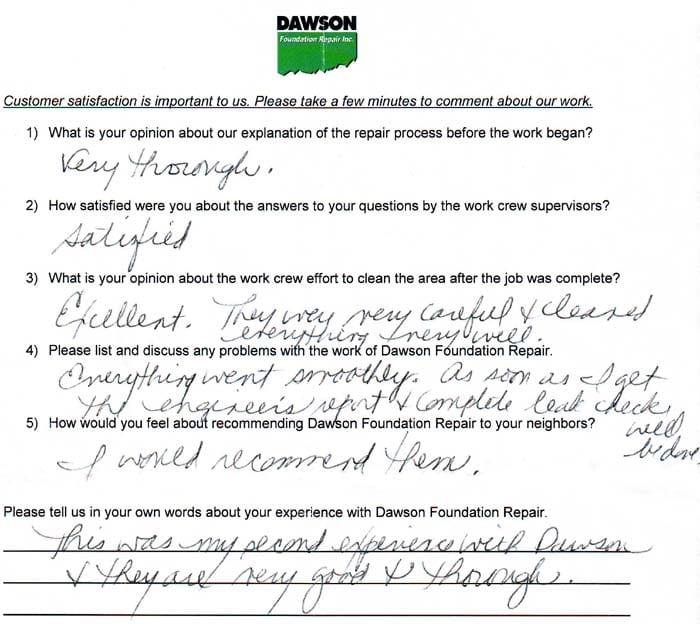 DAWSON
Foundation Repair Inc.
Customer satisfaction is important to us. Please take a few minutes to comment about our work.
1) What is your opinion about our explanation of the repair process before the work began?
Very thorough.
2) How satisfied were you about the answers to your questions by the work crew supervisors?
Satisfied
3) What is your opinion about the work crew effort to clean the area after the job was complete?
Excellent. They wey very careful & cleaned
everything very well.
4) Please list and discuss any problems with the work of Dawson Foundation Repair.
Everything went smoothly. As soon as I get
the engineers report & complete leak check,
5) How would you feel about recommending Dawson Foundation Repair to your neighbors?
well
be done.
I would recommend them.
Please tell us in your own words about your experience with Dawson Foundation Repair.
This was my second experience with Dawson
& they are very good & thorough.